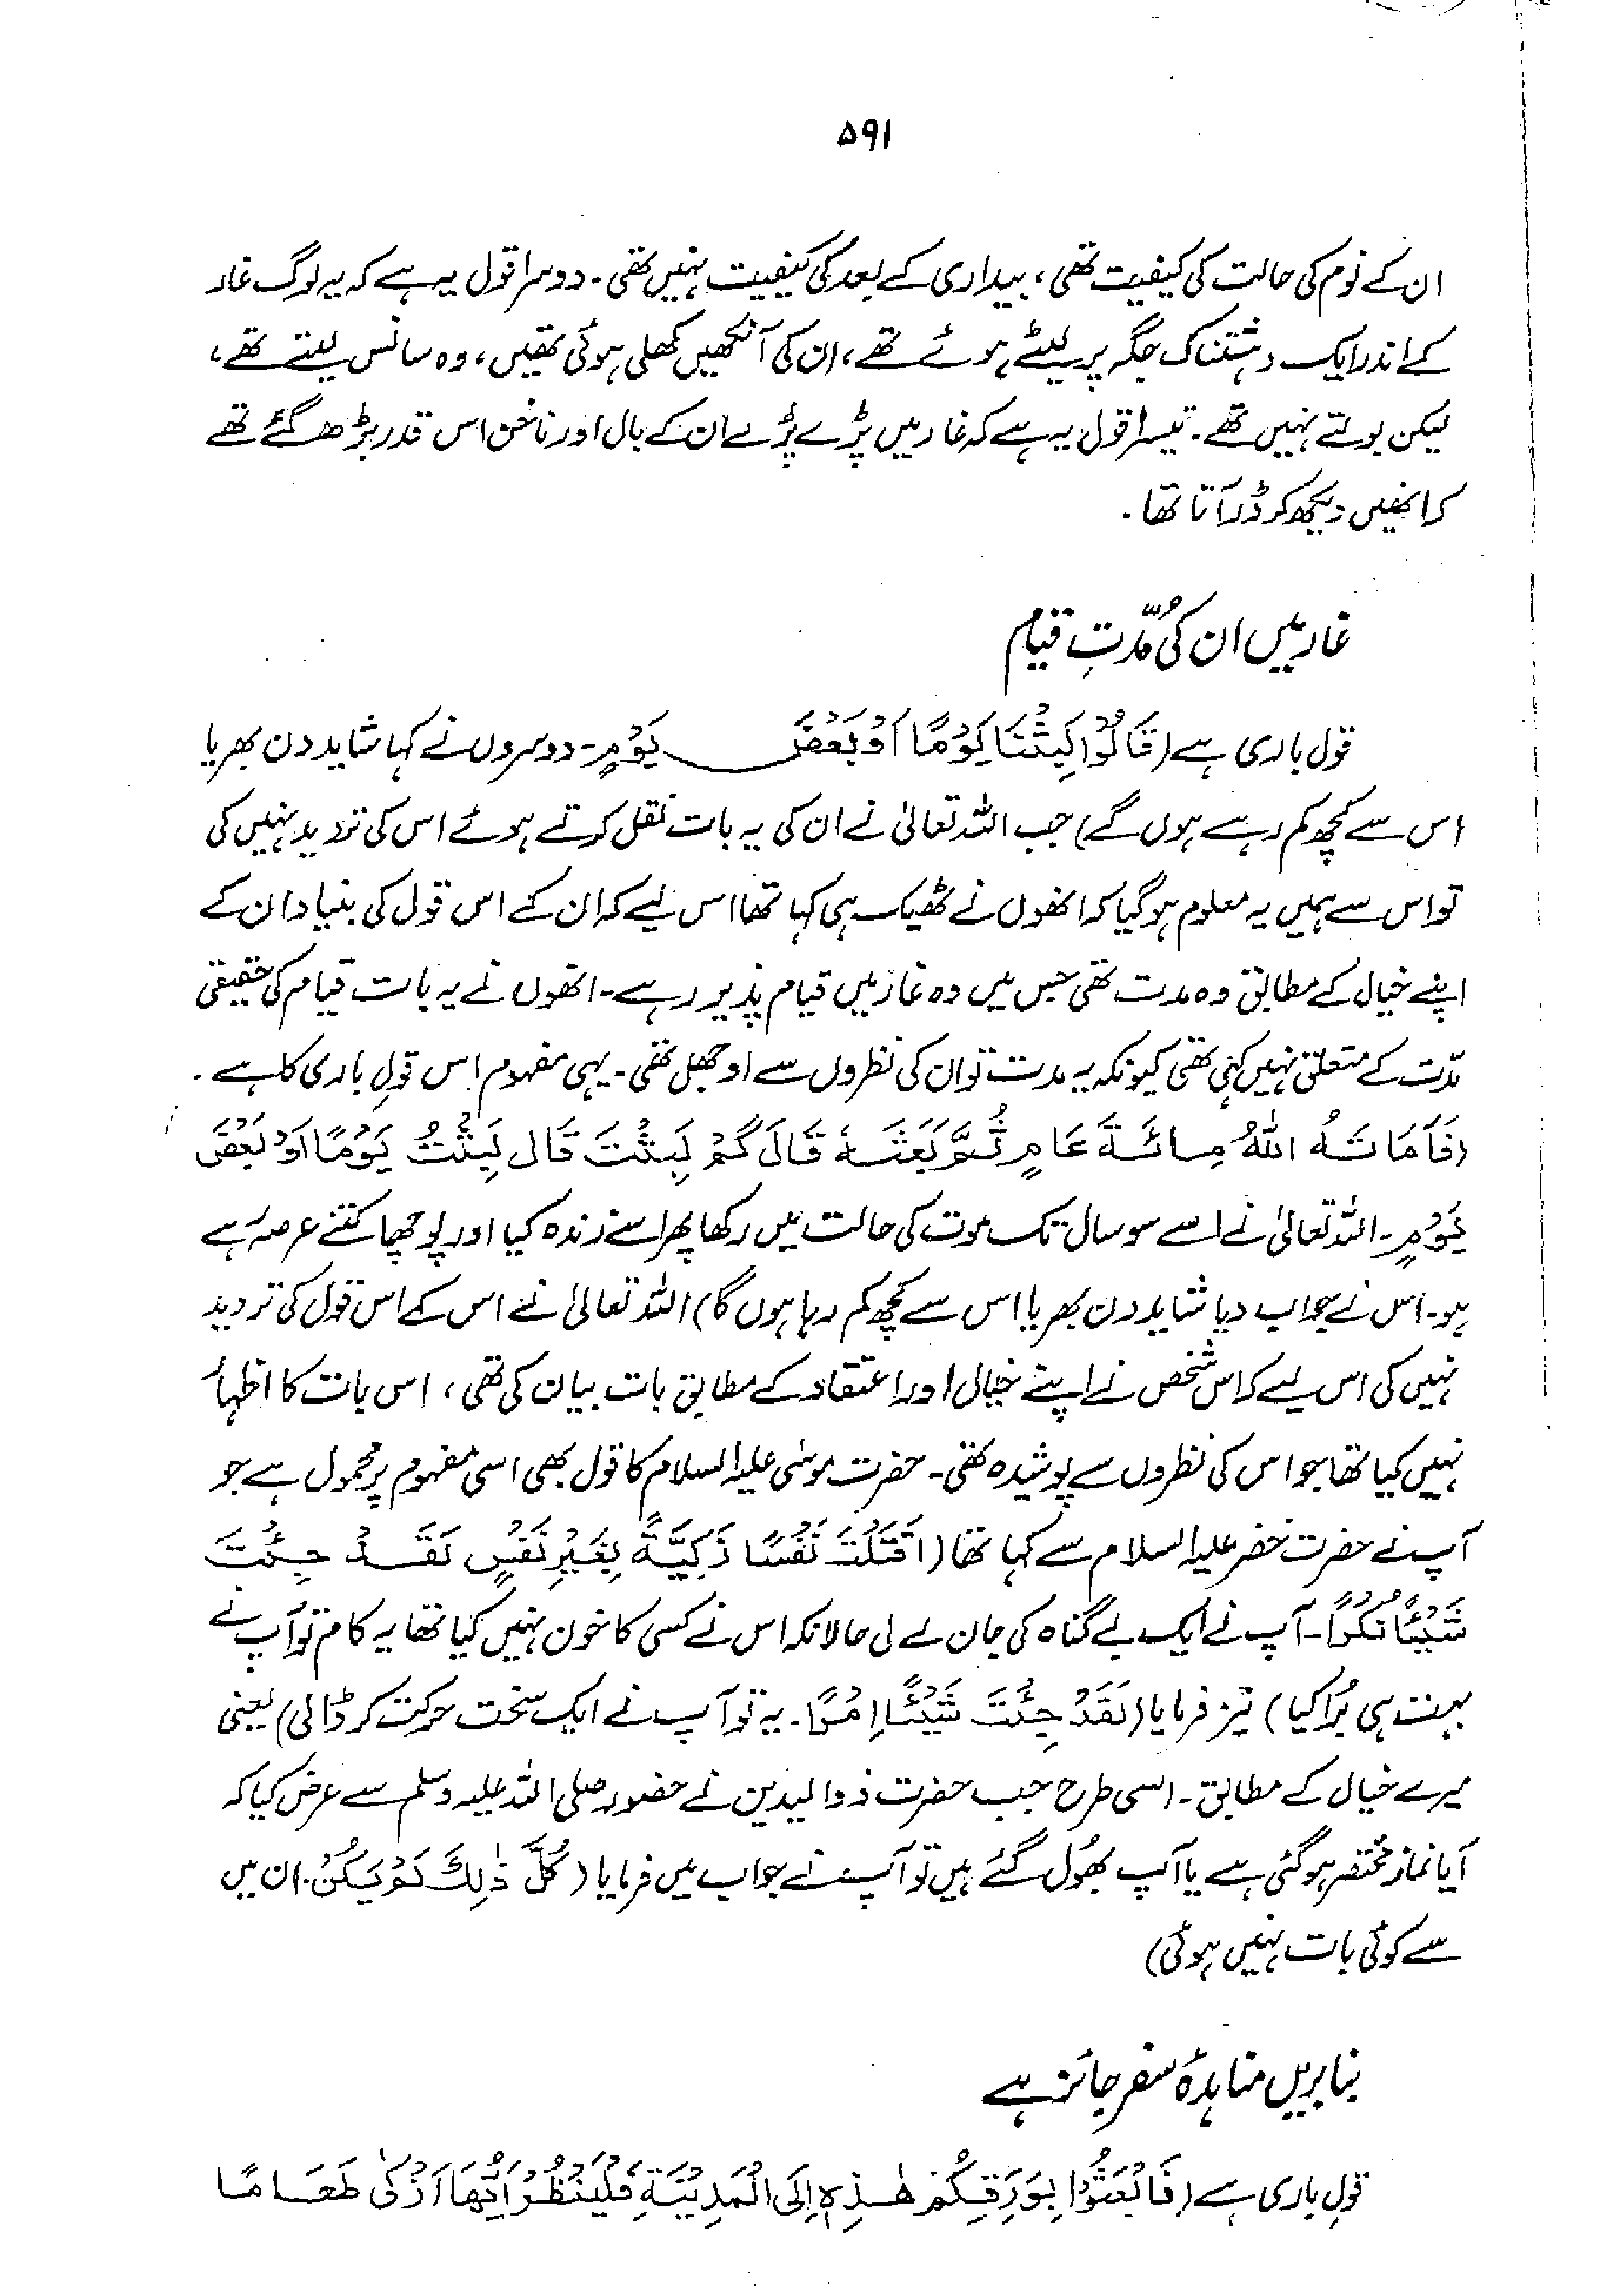 ۵۹۱
ان کے نوم کی حالت کی کیفیت تھی، بیداری کے بعد کی کیفیت نہیں تھی۔ دوسرا قول یہ ہے کہ یہ لوگ غار
کے اندر ایک دہشتناک جگہ پر لیٹے ہوئے تھے، ان کی آنکھیں کھلی ہوئی تھیں، وہ سانس لیتے تھے،
لیکن بولتے نہیں تھے۔ تیسرا قول یہ ہے کہ غار میں پڑے پڑے ان کے بال اور ناخن اس قدر بڑھ گئے تھے
کہ انھیں دیکھ کر ڈر آتا تھا۔
غار میں ان کی مُدّتِ قیام
قول باری ہے (قَالُوْا لَبِثْنَا يَوْمًا اَوْ بَعْضَ يَوْمٍ۔ دوسروں نے کہا شاید دن بھر یا
اس سے کچھ کم رہے ہوں گے) جب اللہ تعالیٰ نے ان کی یہ بات نقل کرتے ہوئے اس کی تردید نہیں کی
تو اس سے ہمیں یہ معلوم ہو گیا کہ انھوں نے ٹھیک ہی کہا تھا اس لیے کہ ان کے اس قول کی بنیاد ان کے
اپنے خیال کے مطابق وہ مدت تھی جس میں وہ غار میں قیام پذیر رہے۔ انھوں نے یہ بات قیام کی حقیقی
مدّت کے متعلق نہیں کہی تھی کیونکہ یہ مدت تو ان کی نظروں سے اوجھل تھی۔ یہی مفہوم اس قولِ باری کا ہے۔
(فَاَمَاتَهُ اللهُ مِائَةَ عَامٍ ثُمَّ بَعَثَهٗ قَالَ كَمْ لَبِثْتَ قَالَ لَبِثْتُ يَوْمًا اَوْ بَعْضَ
يَوْمٍ۔ اللہ تعالیٰ نے اسے سو سال تک موت کی حالت میں رکھا پھر اسے زندہ کیا اور پوچھا کتنے عرصہ رہے
ہو۔ اس نے جواب دیا شاید دن بھر یا اس سے کچھ کم رہا ہوں گا) اللہ تعالیٰ نے اس کے اس قول کی تردید
نہیں کی اس لیے کہ اس شخص نے اپنے خیال اور اعتقاد کے مطابق بات بیان کی تھی، اس بات کا اظہار
نہیں کیا تھا جو اس کی نظروں سے پوشیدہ تھی۔ حضرت موسٰی علیہ السلام کا قول بھی اسی مفہوم پر محمول ہے جو
آپ نے حضرت خضر علیہ السلام سے کہا تھا (اَقَتَلْتَ نَفْسًا زَكِيَّةً بِغَيْرِ نَفْسٍ لَقَدْ جِئْتَ
شَيْئًا نُكْرًا۔ آپ نے ایک بے گناہ کی جان لے لی حالانکہ اس نے کسی کا خون نہیں کیا تھا یہ کام تو آپ نے
بہت ہی بُرا کیا) نیز فرمایا (لَقَدْ جِئْتَ شَيْئًا اِمْرًا۔ یہ تو آپ نے ایک سخت حرکت کر ڈالی) یعنی
میرے خیال کے مطابق۔ اسی طرح جب حضرت ذوالیدین نے حضور صلی اللہ علیہ وسلم سے عرض کیا کہ
آیا نماز مختصر ہو گئی ہے یا آپ بھُول گئے ہیں تو آپ نے جواب میں فرمایا (كُلُّ ذٰلِكَ لَمْ يَكُنْ۔ ان میں
سے کوئی بات نہیں ہوئی)
بنا بریں مناہدۂ سفر جائز ہے
قولِ باری ہے (فَابْعَثُوْا بِوَرِقِكُمْ هٰذِهٖ اِلَى الْمَدِيْنَةِ فَلْيَنْظُرْ اَيُّهَا اَزْكٰى طَعَامًا